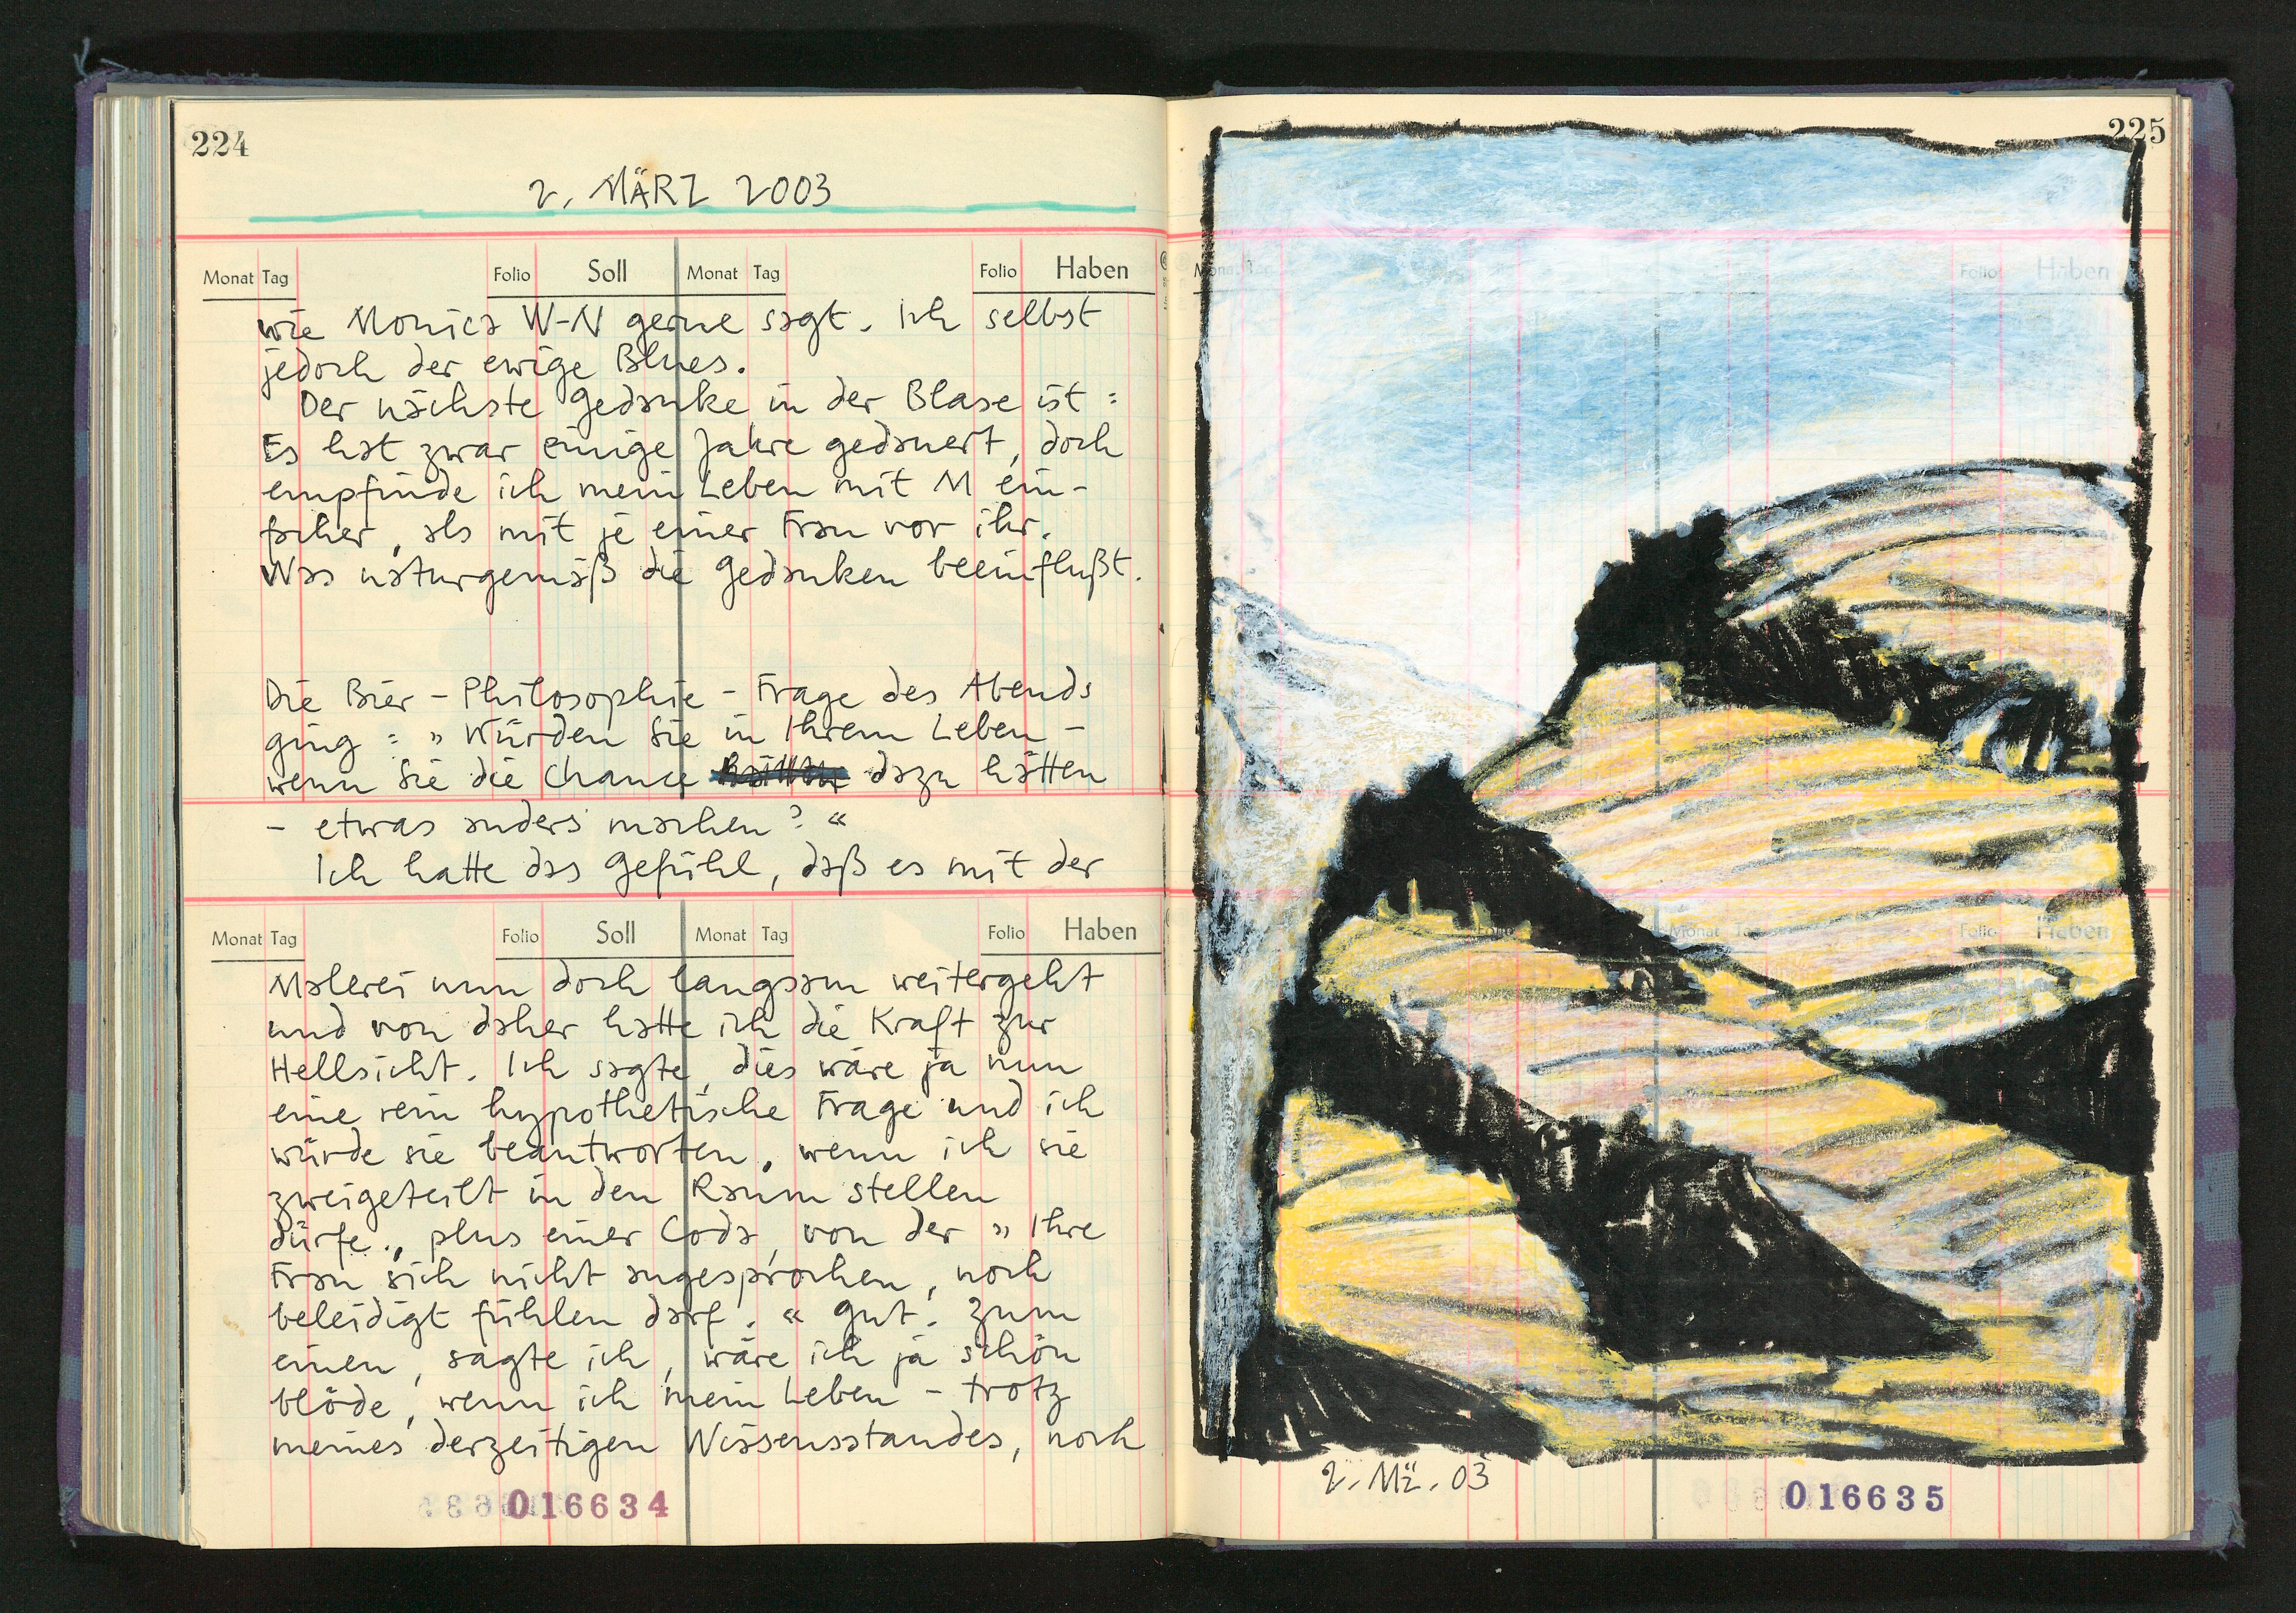 224
2. MÄRZ 2003
Monat Tag Folio Soll Monat Tag Folio Haben
wie Monica W-N gerne sagt. Ich selbst
jedoch der ewige Blues.
Der nächste Gedanke in der Blase ist :
Es hat zwar einige Jahre gedauert, doch
empfinde ich mein Leben mit M ein-
facher, als mit je einer Frau vor ihr.
Was naturgemäß die Gedanken beeinflußt.
Die Bier - Philosophie - Frage des Abends
ging : » Würden Sie in Ihrem Leben -
wenn Sie die Chance dazu hätten
- etwas anders machen ? «
Ich hatte das Gefühl, daß es mit der
Monat Tag Folio Soll Monat Tag Folio Haben
Malerei nun doch langsam weitergeht
und von daher hatte ich die Kraft zur
Hellsicht. Ich sagte, dies wäre ja nun
eine rein hypothetische Frage und ich
würde sie beantworten, wenn ich sie
zweigeteilt in den Raum stellen
dürfe., plus einer Coda, von der » Ihre
Frau sich nicht angesprochen, noch
beleidigt fühlen darf. « Gut. Zum
einen, sagte ich, wäre ich ja schön
blöde, wenn ich mein Leben - trotz
meines derzeitigen Wissensstandes, noch
016634
225
Monat Tag Folio Haben
Monat Folio Haben
2. Mä. 03
016635